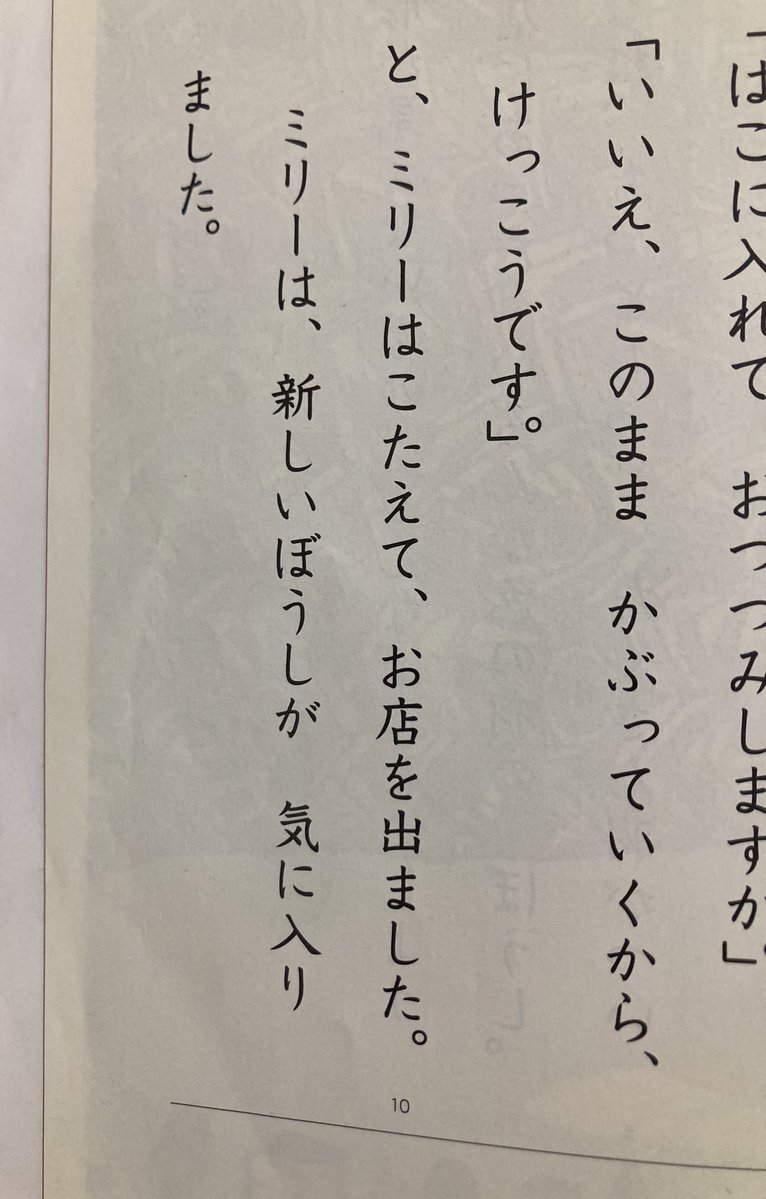 「はこに入れて　おつつみしますか。」
「いいえ、このまま　かぶっていくから、
けっこうです。」
と、ミリーはこたえて、お店を出ました。
ミリーは、新しいぼうしが　気に入り
ました。
10